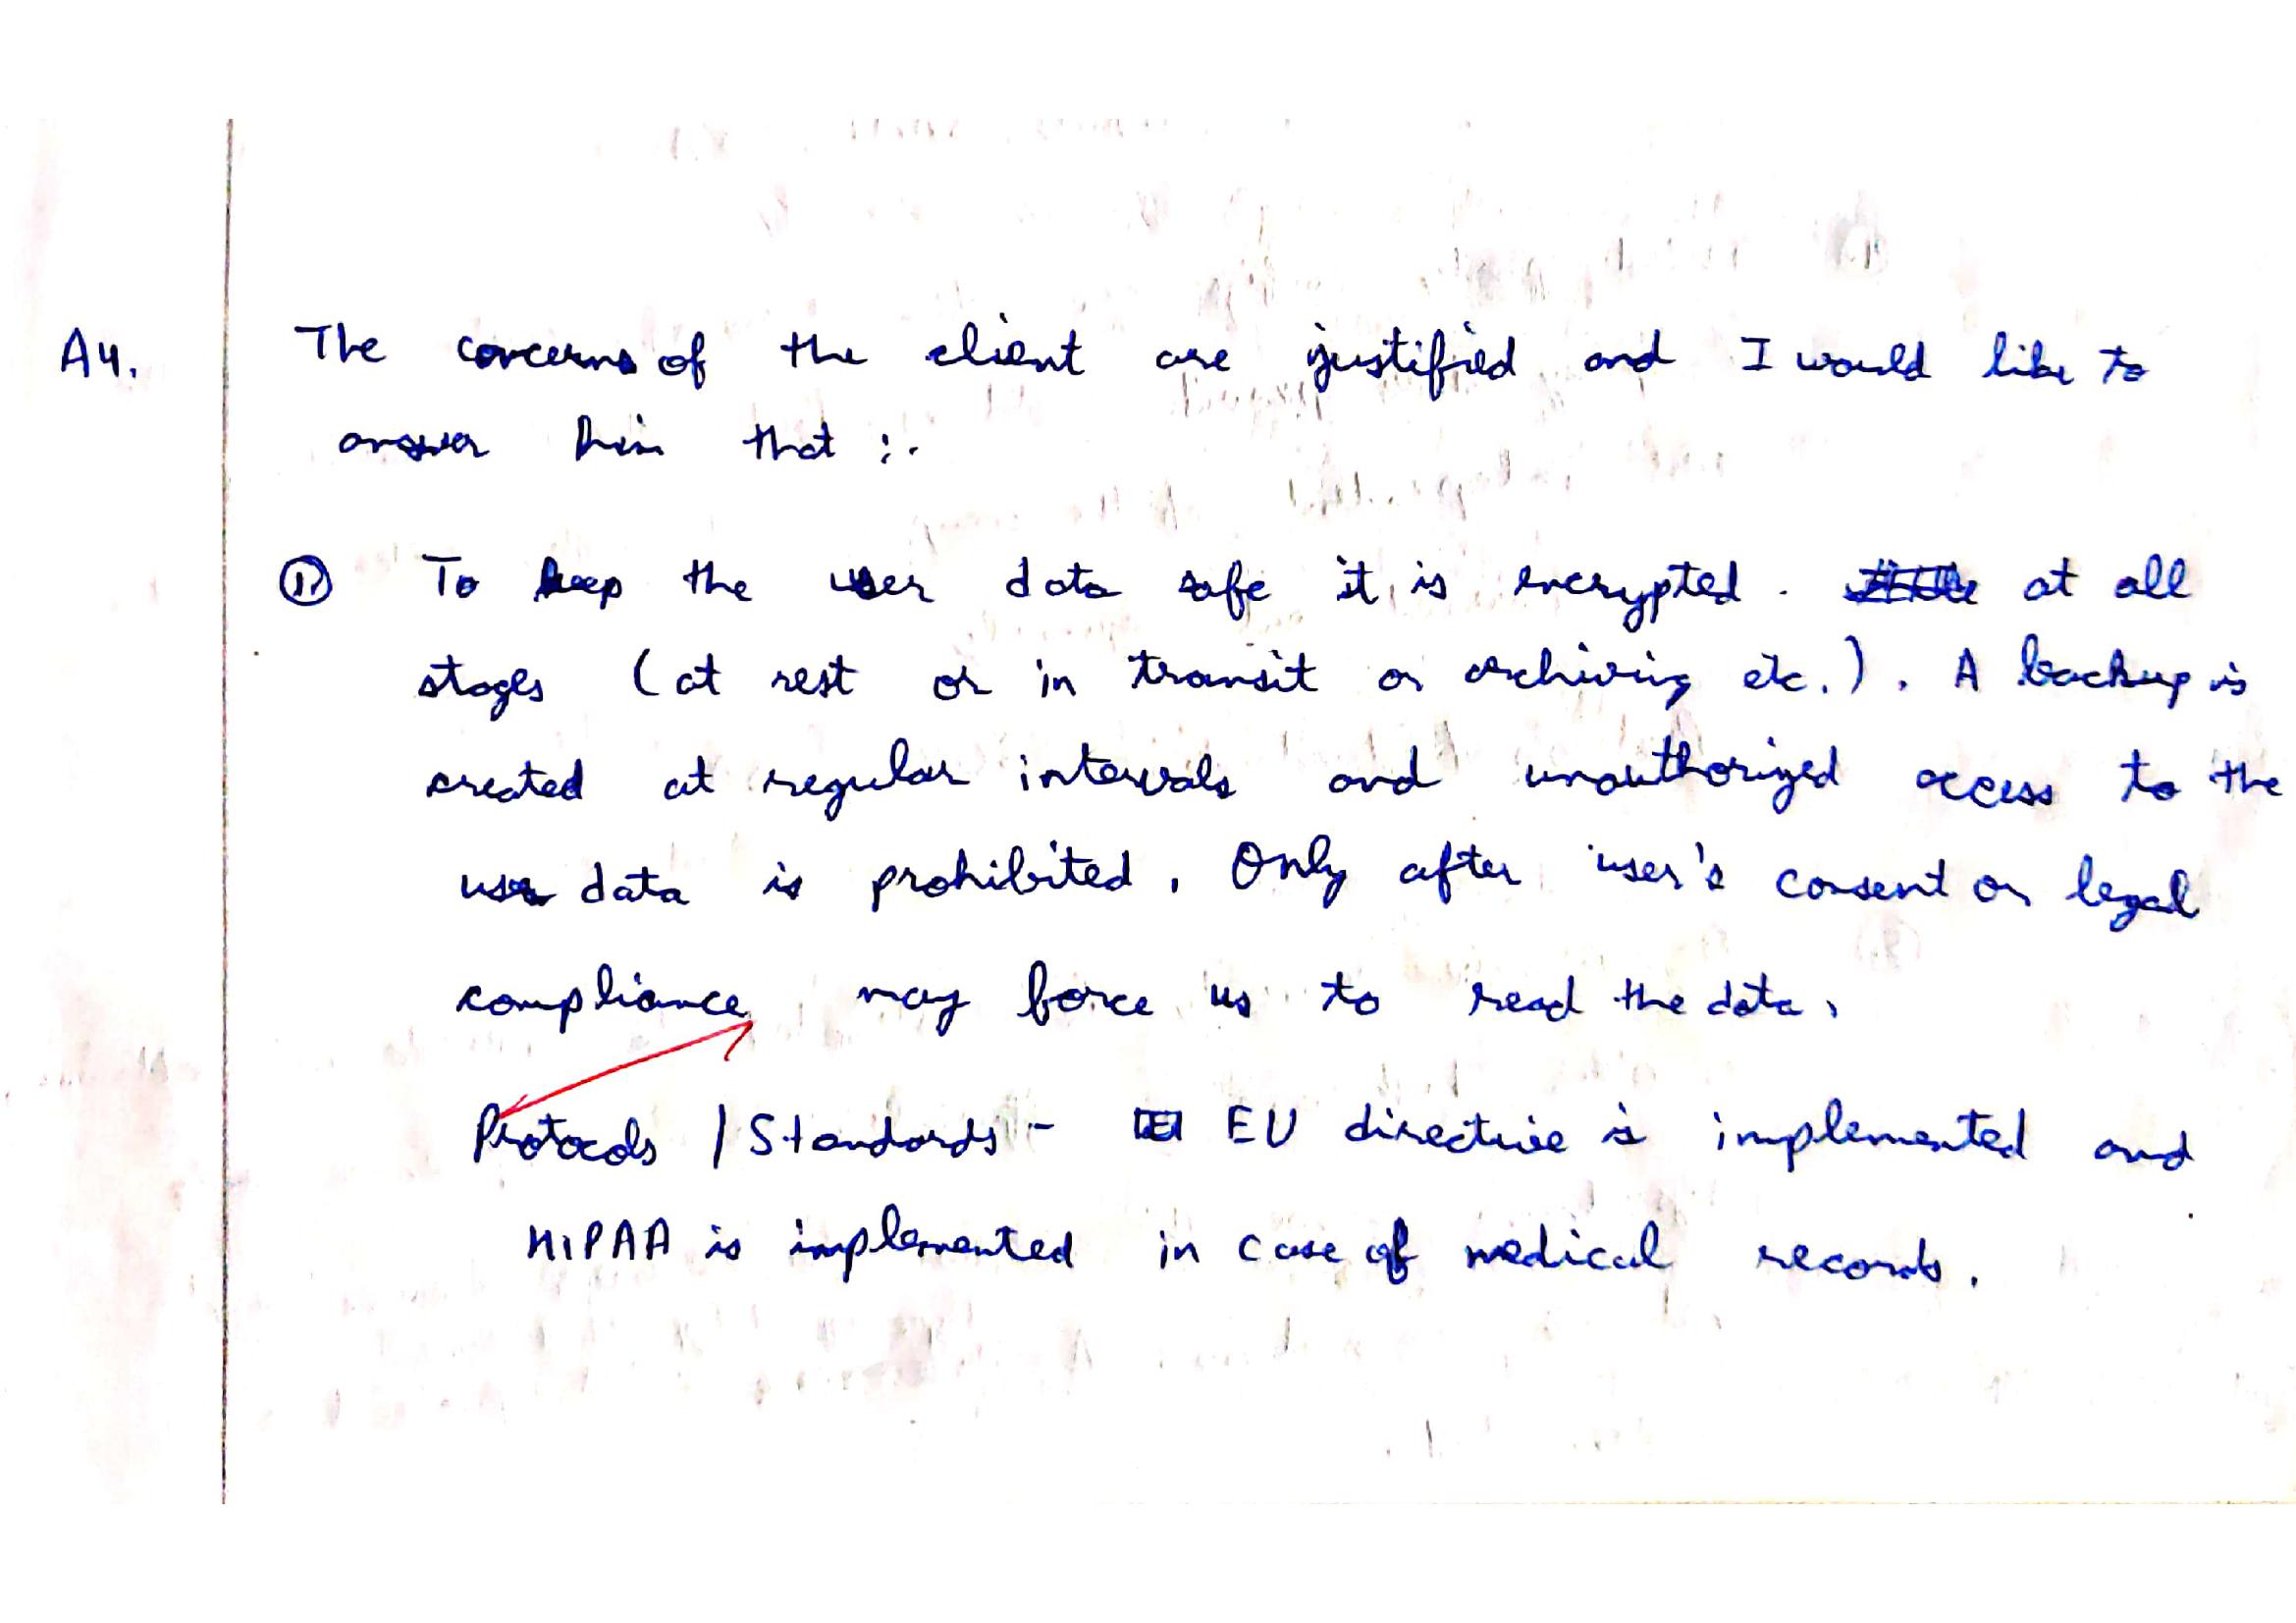 A4. The concerns of the client are justified and I would like to
answer him that :-
① To keep the user data safe it is encrypted. at all
stages (at rest or in transit or archiving etc.). A backup is
created at regular intervals and unauthorized access to the
user data is prohibited. Only after user's consent or legal
compliance may force us to read the data.
Protocols / Standards - EU directive is implemented and
HIPAA is implemented in case of medical records.